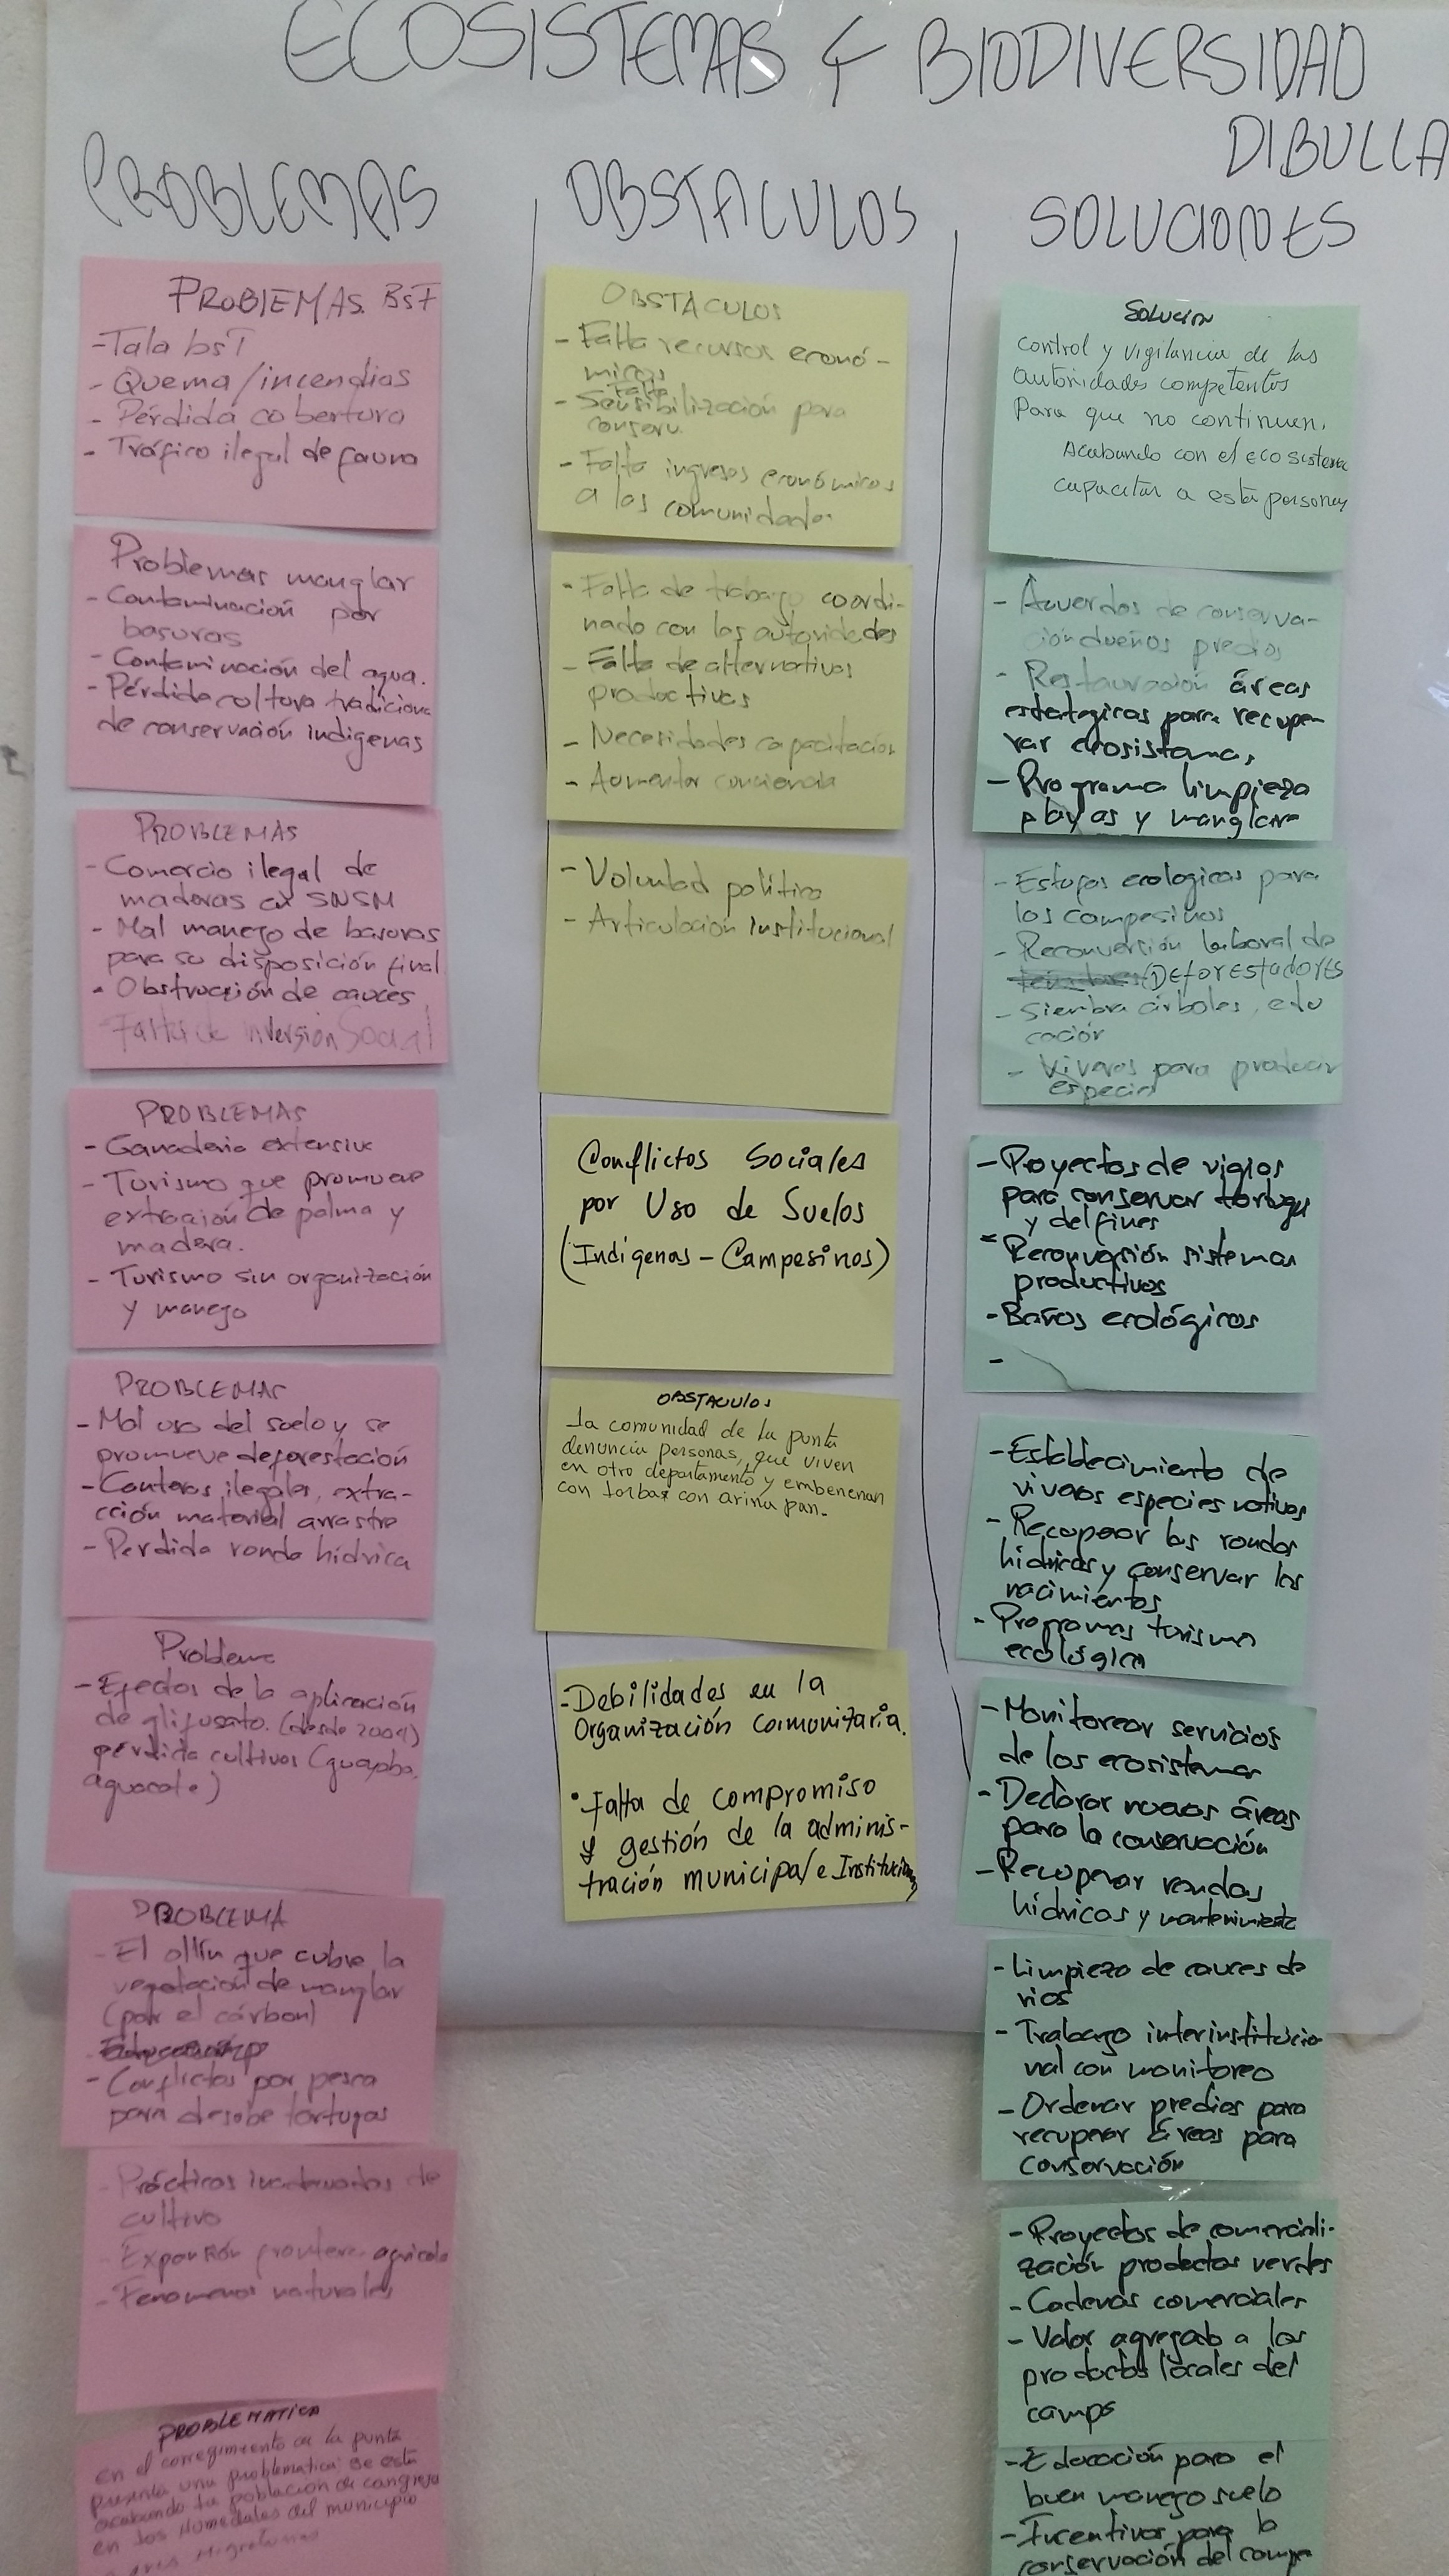 ECOSISTEMAS Y BIODIVERSIDAD
DIBULLA
PROBLEMAS
PROBLEMAS BST
- Tala bsT
- Quema/incendios
- Pérdida cobertura
- Tráfico ilegal de fauna
Problemas manglar
- Contaminación por
basuras
- Contaminación del agua.
- Pérdida cultura tradiciona
de conservación indígenas
PROBLEMAS
- Comercio ilegal de
maderas SNSM
- Mal manejo de basuras
para su disposición final
- Obstrucción de cauces
Falta de inversión Social
PROBLEMAS
- Ganadería extensiva
- Turismo que promueve
extracción de palma y
madera.
- Turismo sin organización
y manejo
PROBLEMAS
- Mal uso del suelo y se
promueve deforestación
- Canteras ilegales, extra-
cción material arrastre
- Perdida ronda hídrica
Problema
- Efectos de la aplicación
de glifosato. (desde 2004)
pérdida cultivos (
aguacate)
PROBLEMA
- El ollín que cubre la
vegetación de manglar
(por el cárbon)
- Conflictos por pesca
para desobe tortugas
- Prácticas inadecuadas de
cultivo
- Expansión frontera agrícola
- Fenomenos naturales
PROBLEMATICA
en el corregimiento de la punta
presenta una problematica: se está
acabando la población de cangrejo
en los Humedales del municipio
Migratorias
OBSTACULOS
OBSTACULOS
- Falta recursos econó-
micos
Falta
- Sensibilización para
conserv.
- Falta ingresos económicos
a las comunidades
- Falta de trabajo coordi-
nado con las autoridades
- Falta de alternativas
productivas
- Necesidades capacitación
- Aumentar conciencia
- Voluntad política
- Articulación institucional
Conflictos Sociales
por Uso de Suelos
(Indígenas - Campesinos)
OBSTACULOS
La comunidad de la punta
denuncia personas, que viven
en otro departamento y embenenan
con torbax con arina pan.
- Debilidades en la
Organización Comunitaria.
• Falta de compromiso
y gestión de la adminis-
tración municipal e Institucion
SOLUCIONES
Solución
Control y vigilancia de las
autoridades competentes
Para que no continuen.
Acabando con el ecosistema
capacitar a esta personas
- Acuerdos de conserva-
ción dueños predios
- Restauración áreas
estratégicas para recupe-
rar ecosistemas
- Programa limpieza
playas y manglare
- Estufas ecologicas para
los campesinos
- Reconversión laboral de
DEFORESTADORES
- Siembra árboles, edu
cación
- Viveros para producir
especies
- Proyectos de vigías
para conservar tortugas
y delfines
- Reconversión sistemas
productivos
- Baños ecológicos
-
- Establecimiento de
viveros especies nativas
- Recuperar las rondas
hídricas y conservar los
nacimientos
- Programas turismo
ecológico
- Monitorear servicios
de los ecosistemas
- Declarar nuevas áreas
para la conservación
- Recuperar rondas
hídricas y mantenimiento
- Limpieza de cauces de
rios
- Trabajo interinstitucio
nal con monitoreo
- Ordenar predios para
recuperar áreas para
conservación
- Proyectos de comerciali-
zación productos verdes
- Cadenas comerciales
- Valor agregado a los
productos locales del
campo
- Educación para el
buen manejo suelo
- Incentivos para la
conservación del campo